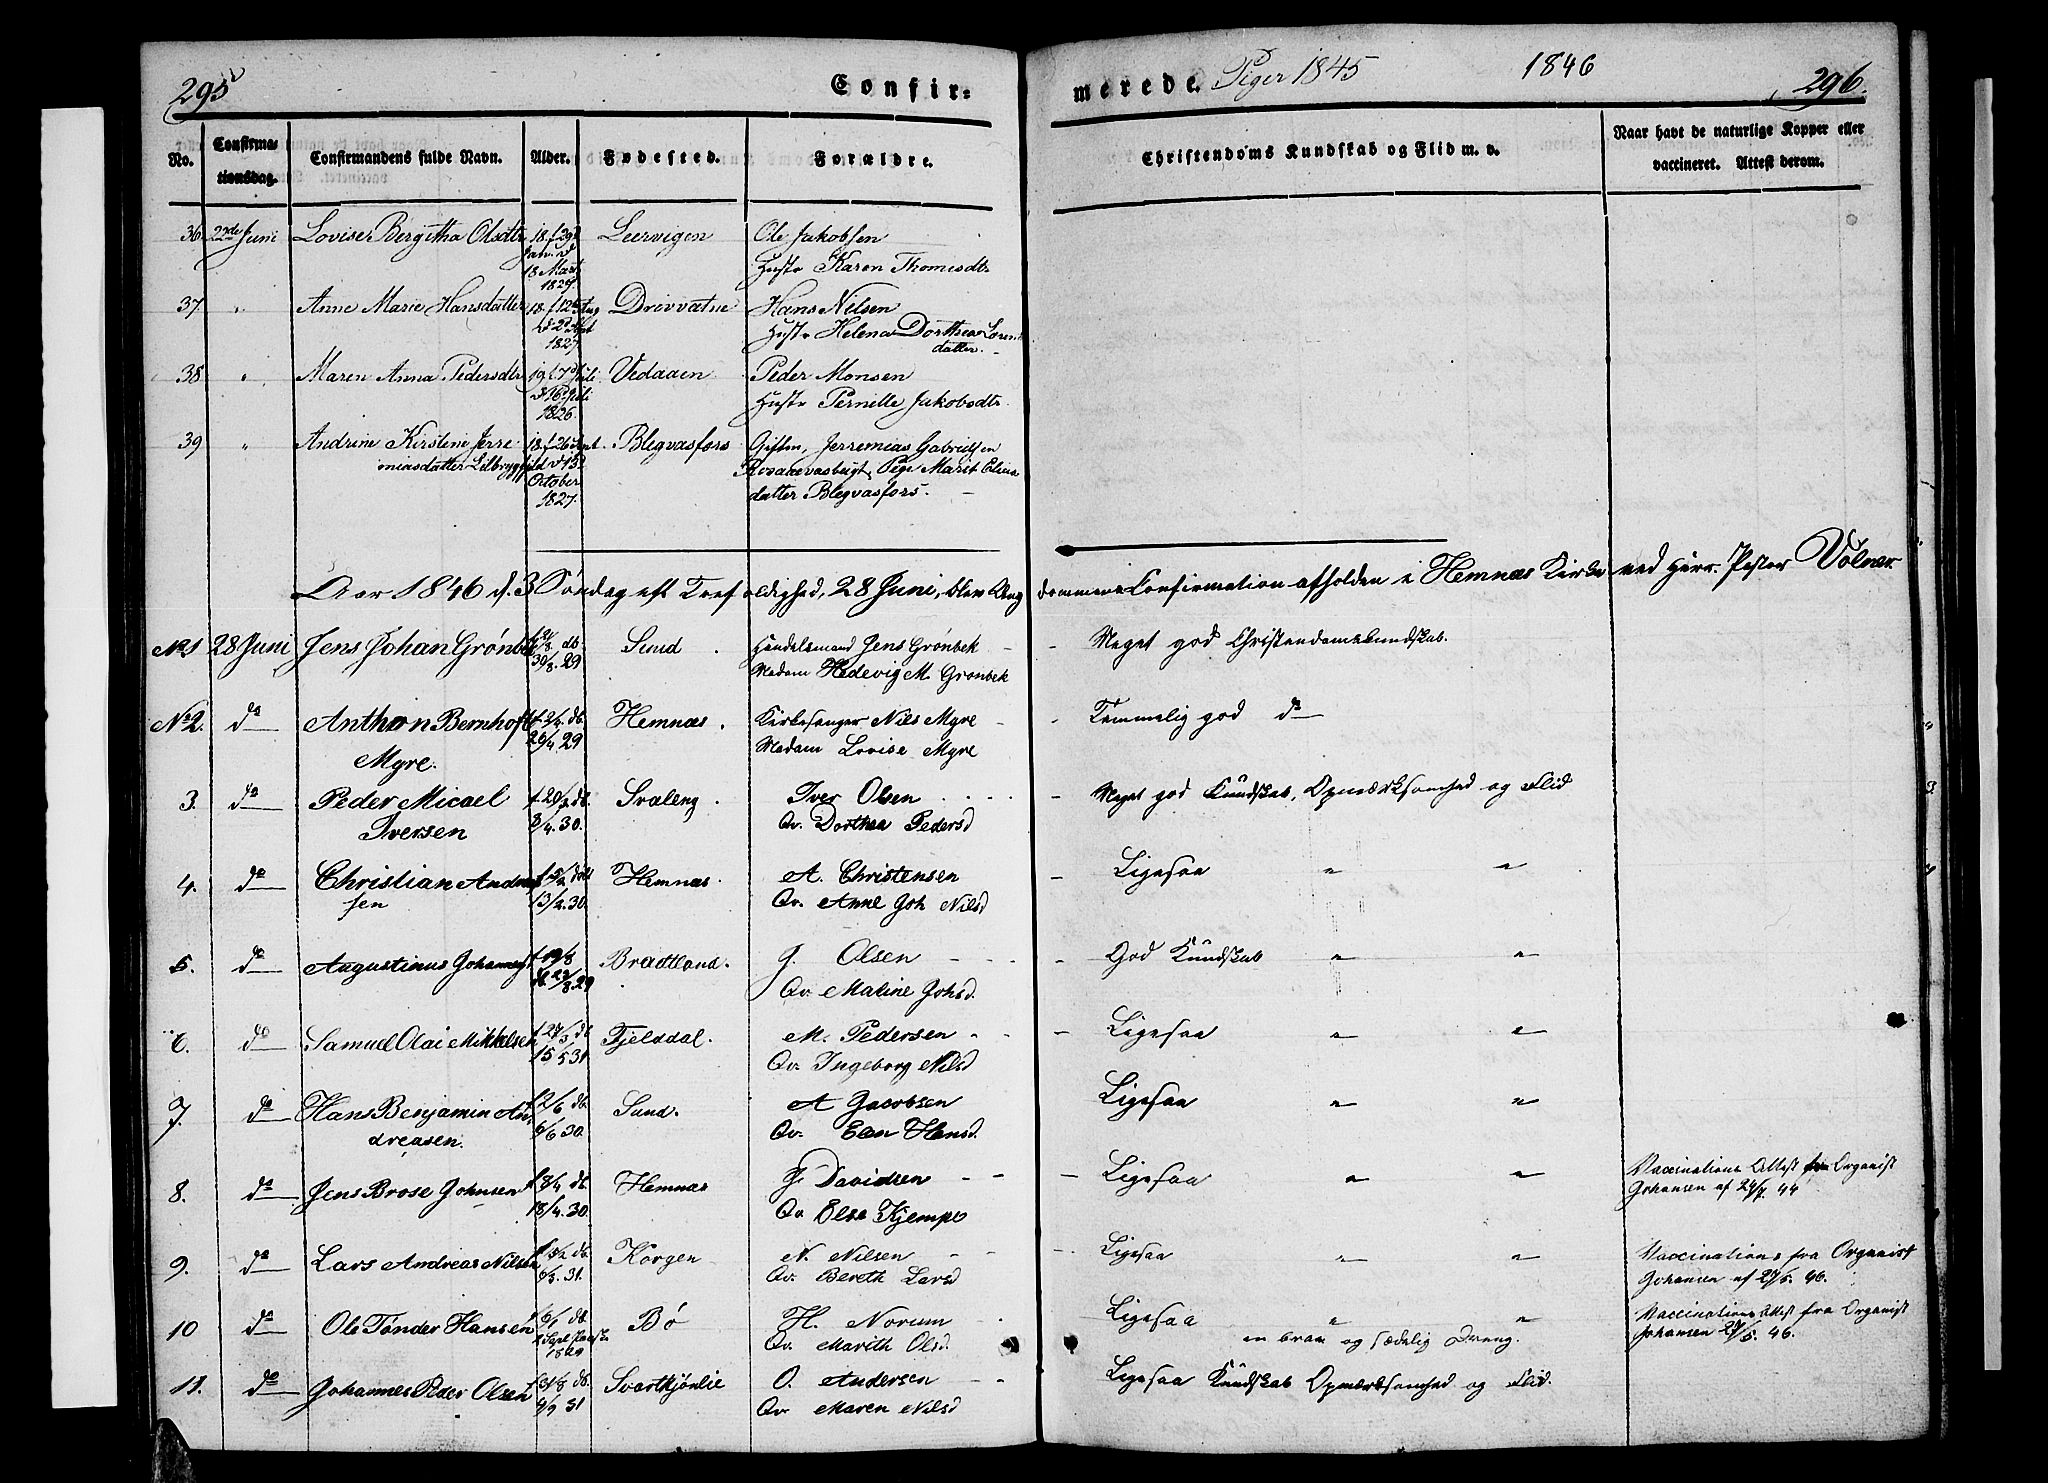 295
Confir-
merede. Piger 1845
1846
296.
No.
Confirma-
tionsdag.
Confirmandens fulde Navn.
Alder.
Fødested.
Forældre.
Christendoms Kundskab og Flid m. v.
Naar havt de naturlige Kopper eller
vaccineret. Attest derom.
36 2den Juni Lovise Bergitha Olsdtr 18 f 29
Jan. d
18 Mart
1827 Leervigen Ole Jakobsen
Hustr Karen Thomisdtr
37. " Anne Marie Hansdatter 18 f 12 Aug
1827 Drevvatne Hans Nilsen
Hustr Helena Dorthea Lorents
datter.
38 " Maren Anna Pedersdtr 19 f. 7 Juli
d 16 Juli
1826. Vedaaen Peder Monsen
Hustr Pernille Jakobsdtr.
39 " Andrine Kirstine Jerre
miasdatter 18 f 26 Sept.
d 15
October
1827. Blegvasfors Giftm. Jerremias Gabrielsen
Pige Marit
datter Blegvasfors.
Aar 1846 d. 3 Søndag eft Trefoldighed, 28 Juni, blev Ung dommens Confirmation afholden i Hemnæs Kirke ved Herr. Pastor Volner
No 1 28 Juni Jens Johan Grønbek 30/8. 29 Sund Handelsmand Jens Grønbek
Madam Hedevig M. Grønbek Meget god Christendomskundskab.
No 2. do Anthon Bernhoft
Myre. f. 2/4. db.
26/4. 29 Hemnæs. Kirkesanger Nils Myre
Madam Lovise Myre Temmelig god do
3. do Peder Micael
Iversen f. 20/3. db.
8/4. 30. Svaleng. Iver Olsen
Qv. Dorthea Pedersd Meget god Kundskab, Opmærksomhed og Flid
4. do Christian Andrea
sen 13/2. 30. Hemnæs. A. Christensen
Qv. Anne Joh Nilsd Ligesaa " "
5. do Augustinus Johannes f 19/8
29 Bradtland. J. Olsen
Qv. Maline Johsd. God Kundskab " "
6. do Samuel Olai Mikkelsen 15 5 31 Fjeldal. M. Pedersen
Qv. Ingeborg Nilsd Ligesaa " "
7. do Hans Benjamin An-
dreasen. f 2/6 db.
6/6 30. Sund. A Jacobsen
Qv. Elen Hansd. Ligesaa " "
8. do Jens Brose Johnsen f 8/4 db.
18/4. 30. Hemnæs J. Davidsen
Qv. Else Kjempe Ligesaa " " Vaccinations Attest fra Organist
Johansen af 24/7. 44
9. do Lars Andreas Nilsen f 5/2 db.
6/3. 31. Korgen N. Nilsen
Qv. Bereth Larsd Ligesaa " " Vaccinations fra Organist
Johansen af 27/5. 46.
10 do Ole Tønder Hansen f 6/1 db. Bø H. Norum
Qv. Marith Olsd. Ligesaa " "
en brav og sædelig Dreng. Vaccinations Attest fra Organist
Johansen 27/5. 46.
11. do Johannes Peder Olsen f 31/8 db.
4/9 31 Svartkjønlie O. Andersen
Qv. Maren Nilsd Ligesaa Kundskab Opmærksomhed og Flid.